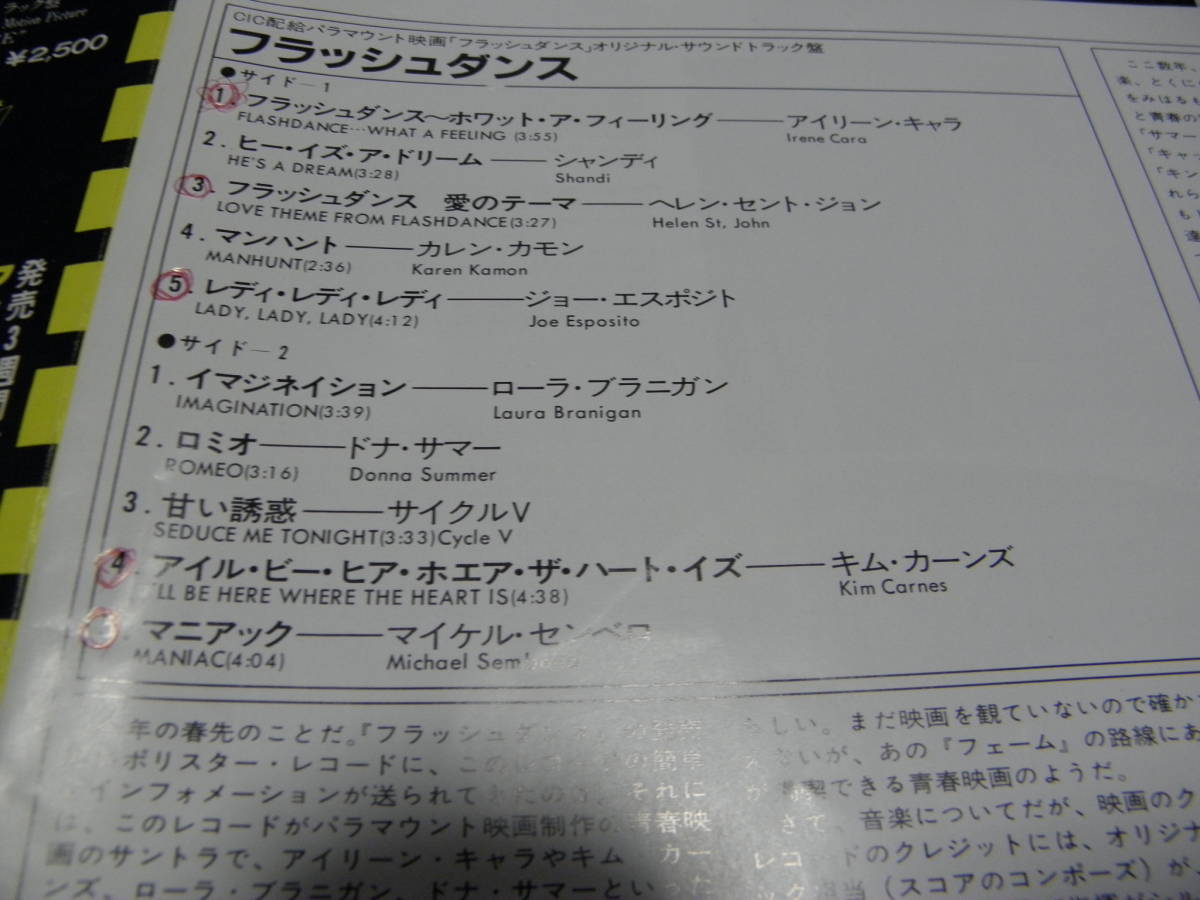 ラック盤
Motion Picture
¥2,500
発売3週間
CIC配給パラマウント映画「フラッシュダンス」オリジナル・サウンドトラック盤
フラッシュダンス
●サイド—1
1. フラッシュダンス〜ホワット・ア・フィーリング——アイリーン・キャラ
FLASHDANCE…WHAT A FEELING (3:55) Irene Cara
2. ヒー・イズ・ア・ドリーム——シャンディ
HE'S A DREAM(3:28) Shandi
3. フラッシュダンス 愛のテーマ——ヘレン・セント・ジョン
LOVE THEME FROM FLASHDANCE(3:27) Helen St, John
4. マンハント——カレン・カモン
MANHUNT(2:36) Karen Kamon
5. レディ・レディ・レディ——ジョー・エスポジト
LADY, LADY, LADY(4:12) Joe Esposito
●サイド—2
1. イマジネイション——ローラ・ブラニガン
IMAGINATION(3:39) Laura Branigan
2. ロミオ——ドナ・サマー
ROMEO(3:16) Donna Summer
3. 甘い誘惑——サイクルV
SEDUCE ME TONIGHT(3:33) Cycle V
4. アイル・ビー・ヒア・ホエア・ザ・ハート・イズ——キム・カーンズ
I'LL BE HERE WHERE THE HEART IS(4:38) Kim Carnes
5. マニアック——マイケル・センベロ
MANIAC(4:04) Michael
年の春先のことだ。『フラッシュ
ポリスター・レコードに、この の簡単
インフォメーションが送られて それに
は、このレコードがパラマウント映画制作の青春映
画のサントラで、アイリーン・キャラやキム カー
ンズ、ローラ・ブラニガン、ドナ・サマーといった
しい。まだ映画を観ていないので確か
ないが、あの『フェーム』の路線にあ
が 喫できる青春映画のようだ。
さて、音楽についてだが、映画のク
レコードのクレジットには、オリジナ
ック担当(スコアのコンポーズ)が、
ここ数年、
楽、とくに
をみはるも
と青春の
「サマー
「キャッ
「キン
れら
もし
達